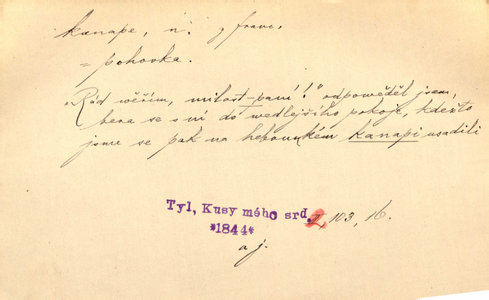 kanape, n. z franc.
= pohovka.
„Rád věřím, milost-paní!" odpověděl jsem,
bera se s ní do vedlejšího pokoje, kdežto
jsme se pak na hebounkém kanapi usadili
Tyl, Kusy mého srd. I, 103, 16.
*1844*
a j.